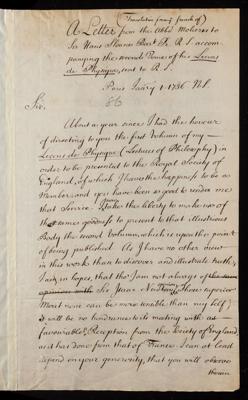 (Translation from french of)
A Letter from the Abbé Molieres to
Sir Hans Sloane Bart. Pr. R. S. accom-
panying the second Volume of his Lecons
de Physique, sent to R. S.
Paris Janry 1. 1736 N.S.
Sir,
About a year since I had the honour
of directing to you the first Volume of my
Lecons de Physique (Lectures of Philosophy) in
order to be presented to the Royal Society of
England, of which I have the happiness to be a
Member, and you have been so good to render me
that Service. I take the liberty to make use of
the same goodness to present to that illustrious
Body the second Volume, which is upon the point
of being published. As I have no other view
in this work than to discover and illustrate truth,
I am in hopes, that tho' I am not always of the same
opinion with Sir Isaac Newton, whose superior
Merit none can be more sensible than my self,
it will be no hindrance to its meeting with as
favourable a Reception from the Society of England
as it has done from that of France. I can at least
depend on your generosity, that you will observe
therein